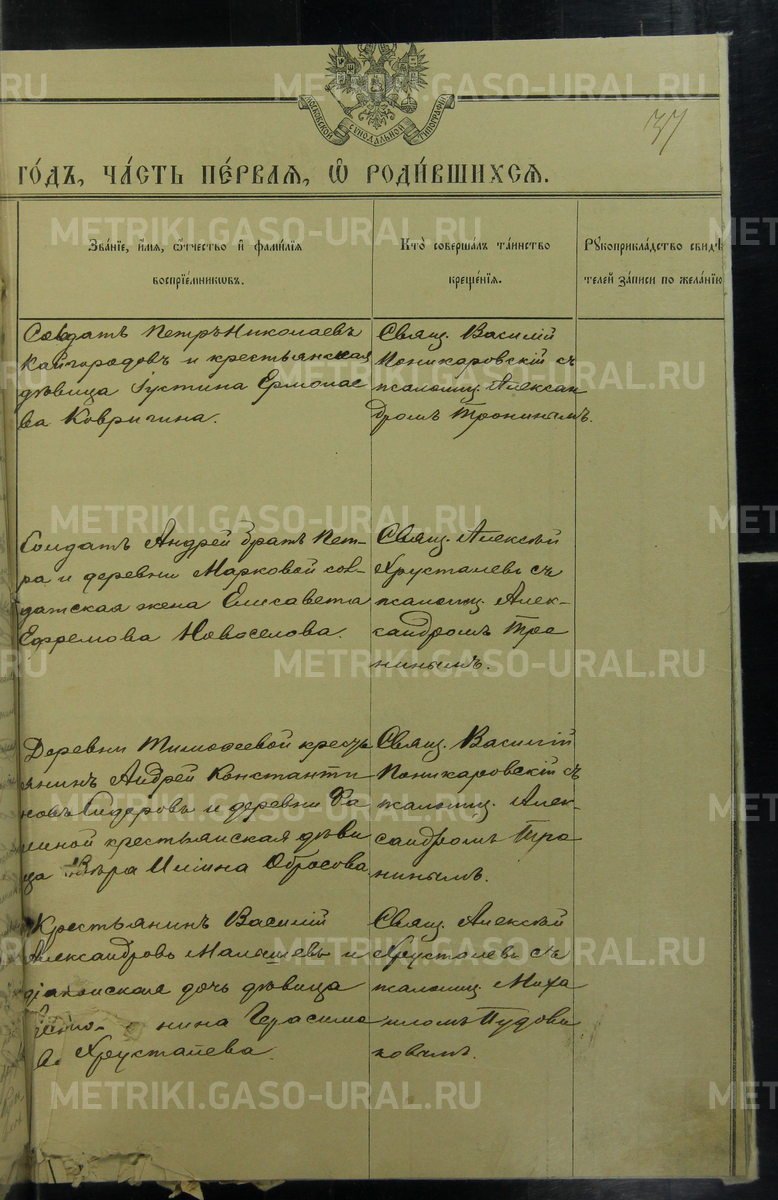 МОСКОВСКОЙ СѴНОДАЛЬНОЙ ТИПОГРАФІИ
37
ГО́ДЪ, ЧА́СТЬ ПЕ́РВАѦ, Ѡ҆ РОДИ́ВШИХСѦ.
Зва́нїе, и҆́мѧ, ѻ҆́тчество и҆ фами́лїѧ
воспрїе́мникѡвъ.
Кто̀ совершалъ та́инство
креще́нїѧ.
Рꙋкоприкла́дство свидѣ́
телей за́писи по жела́нїю
Солдатъ Петръ Николаевъ
Кайгородовъ и крестьянская
дѣвица Іустина Ермолае
ва Ковригина.
Свящ. Василій
Поникаровскій съ
псаломщ. Алексан
дромъ Трониным​ъ.
Солдатъ Андрей братъ Пет-
ра и деревни Марковой сол-
датская жена Елисавета
Ефремова Новоселова.
Свящ. Алексѣй
Хрусталевъ съ
псаломщ. Алек-
сандромъ Тро
нинымъ.
Деревни Тимофеевой кресть
янинъ Андрей Константи
новъ Сидоровъ и деревни
крестьянская дѣви
ца Вѣра Ильина Обросова
Свящ. Василій
Поникаровскій съ
псаломщ. Алек-
сандромъ Тро
нинымъ.
Крестьянинъ Василій
Александровъ Малышевъ и
діаконская дочь дѣвица
нина Герасимо
ва Хрусталева.
Свящ. Алексѣй
Хрусталевъ съ
псаломщ. Миха
иломъ Пудови
ковымъ.
METRIKI.GASO-URAL.RU